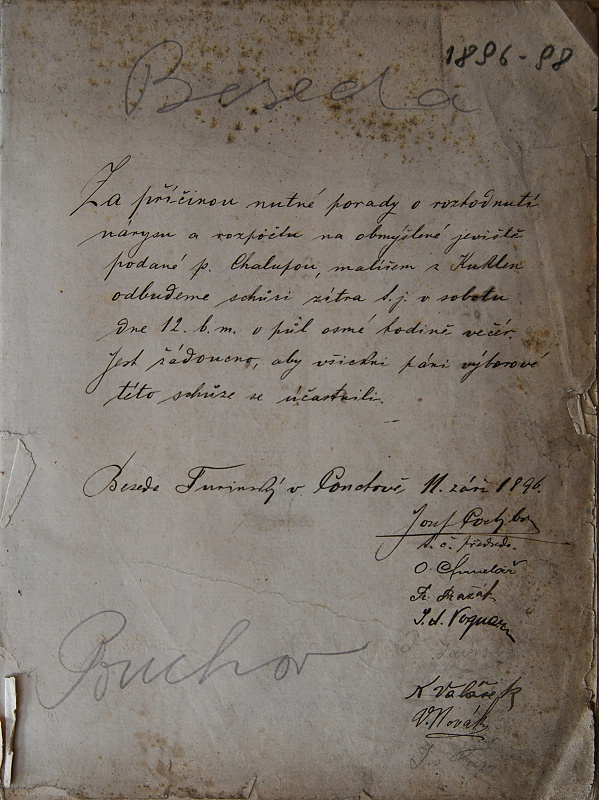 1896-98
Beseda
Za příčinou nutné porady o rozhodnutí
nárysu a rozpočtu na obmýšlené jeviště
podané p. Chalupou, malířem z Kuklen
odbudeme schůsi zítra t.j. v sobotu
dne 12. b. m. o půl osmé hodině večer.
Jest žádoucno, aby všickni páni výborové
této schůze se účastnili.
Beseda Turinský v Pouchově 11. září 1896.
Josef
t. č. předseda.
O. Chmelař
Fr.
J. d.
Pouchov
K Valášek
V. Novák